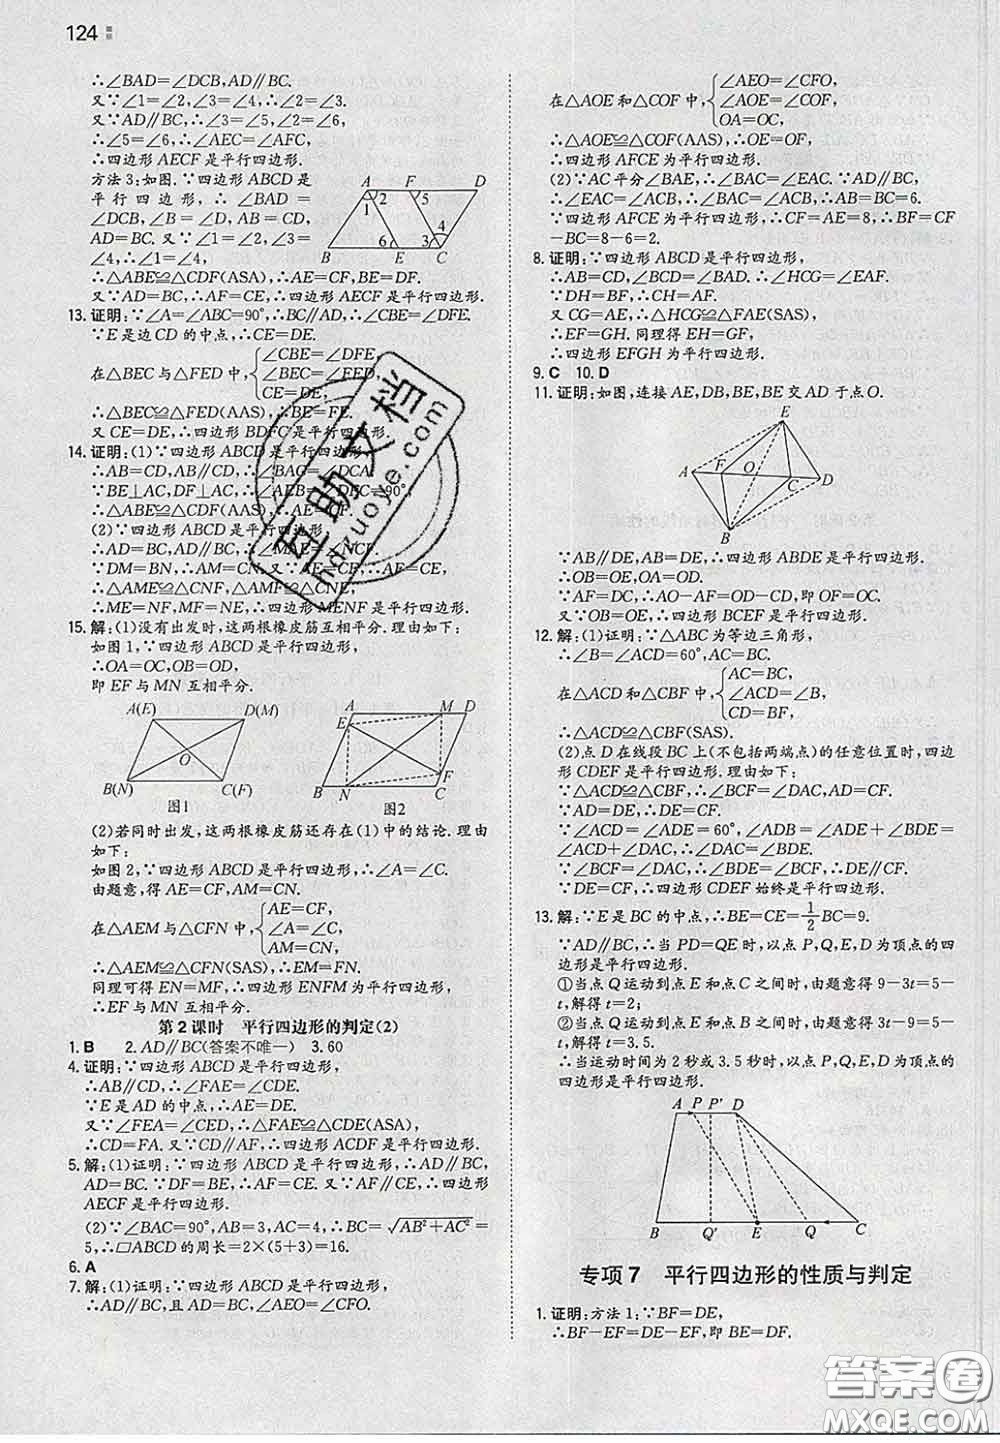 124
∴∠BAD=∠DCB,AD∥BC.
又∵∠1=∠2,∠3=∠4,∴∠2=∠3.
又∵AD∥BC,∴∠3=∠5,∠2=∠6,
∴∠5=∠6,∴∠AEC=∠AFC,
∴四边形AECF是平行四边形.
方法3:如图.∵四边形ABCD是
平行四边形,∴∠BAD=
∠DCB,∠B=∠D,AB=CD,
AD=BC.又∵∠1=∠2,∠3=
∠4,∴∠1=∠4,
A F D
1 2 5
6 3 4
B E C
∴△ABE≌△CDF(ASA),∴AE=CF,BE=DF.
又∵AD=BC,∴AF=CE,∴四边形AECF是平行四边形.
13.证明:∵∠A=∠ABC=90°,∴BC∥AD,∴∠CBE=∠DFE.
∵E是边CD的中点,∴CE=DE.
在△BEC与△FED中,{∠CBE=∠DFE,
∠BEC=∠FED,
CE=DE,
∴△BEC≌△FED(AAS),∴BE=FE.
又CE=DE,∴四边形BDFC是平行四边形.
14.证明:(1)∵四边形ABCD是平行四边形,
∴AB=CD,AB∥CD,∴∠BAC=∠DCA.
∵BE⊥AC,DF⊥AC,∴∠AEB=∠DFC=90°,
(2)∵四边形ABCD是平行四边形,
∴AB∥CD,AB=CD,∴∠MAE=∠NCF.
∵DM=BN,∴AM=CN.又∵AE=CF,∴AF=CE,
∴△AME≌△CNF,△AMF≌△CNE,
∴ME=NF,MF=NE,∴四边形MENF是平行四边形.
15.解:(1)没有出发时,这两根橡皮筋互相平分.理由如下:
如图1,∵四边形ABCD是平行四边形,
∴OA=OC,OB=OD,
即EF与MN互相平分.
A(E) D(M)
O
B(N) C(F)
图1
A M D
E
F
B N C
图2
(2)若同时出发,这两根橡皮筋还存在(1)中的结论.理由
如下:
如图2,∵四边形ABCD是平行四边形,∴∠A=∠C.
由题意,得AE=CF,AM=CN.
在△AEM与△CFN中,{AE=CF,
∠A=∠C,
AM=CN,
∴△AEM≌△CFN(SAS),∴EM=FN.
同理可得EN=MF,∴四边形ENFM为平行四边形,
∴EF与MN互相平分.
第2课时 平行四边形的判定(2)
1.B 2.AD∥BC(答案不唯一) 3.60
4.证明:∵四边形ABCD是平行四边形,
∴AB∥CD,∴∠FAE=∠CDE.
∵E是AD的中点,∴AE=DE.
又∵∠FEA=∠CED,∴△FAE≌△CDE(ASA),
∴CD=FA.又∵CD∥AF,∴四边形ACDF是平行四边形.
5.解:(1)证明:∵四边形ABCD是平行四边形,∴AD∥BC,
AD=BC.∵DF=BE,∴AF=CE.又∵AF∥CE,∴四边形
AECF是平行四边形.
(2)∵∠BAC=90°,AB=3,AC=4,∴BC=√(AB²+AC²)=
5,∴□ABCD的周长=2×(5+3)=16.
6.A
7.解:(1)证明:∵四边形ABCD是平行四边形,
∴AD∥BC,且AD=BC,∴∠AEO=∠CFO.
在△AOE和△COF中,{∠AEO=∠CFO,
∠AOE=∠COF,
OA=OC,
∴△AOE≌△COF(AAS),∴OE=OF,
∴四边形AFCE为平行四边形.
(2)∵AC平分∠BAE,∴∠BAC=∠EAC.∵AD∥BC,
∴∠EAC=∠ACB,∴∠BAC=∠ACB,∴AB=BC=6.
∵四边形AFCE为平行四边形,∴CF=AE=8,∴BF=CF
-BC=8-6=2.
8.证明:∵四边形ABCD是平行四边形,
∴AB=CD,∠BCD=∠BAD.∴∠HCG=∠EAF.
∵DH=BF,∴CH=AF.
又CG=AE,∴△HCG≌△FAE(SAS),
∴EF=GH.同理得EH=GF,
∴四边形EFGH为平行四边形.
9.C 10.D
11.证明:如图,连接AE,DB,BE,BE交AD于点O.
E
A F O C D
B
∵AB∥DE,AB=DE,∴四边形ABDE是平行四边形.
∴OB=OE,OA=OD.
∵AF=DC,∴AO-AF=OD-CD,即OF=OC.
又∵OB=OE,∴四边形BCEF是平行四边形.
12.解:(1)证明:∵△ABC为等边三角形,
∴∠B=∠ACD=60°,AC=BC.
在△ACD和△CBF中,{AC=BC,
∠ACD=∠B,
CD=BF,
∴△ACD≌△CBF(SAS).
(2)点D在线段BC上(不包括两端点)的任意位置时,四边
形CDEF是平行四边形.理由如下:
∵△ACD≌△CBF,∴∠BCF=∠DAC,AD=CF.
∵AD=DE,∴DE=CF.
∵∠ACD=∠ADE=60°,∠BDA=∠ADE+∠BDE=
∠ACD+∠DAC,∴∠DAC=∠BDE.
∵∠BCF=∠DAC,∴∠BDE=∠BCF,∴DE∥CF.
∵DE=CF,∴四边形CDEF始终是平行四边形.
13.解:∵E是BC的中点,∴BE=CE=1/2BC=9.
∵AD∥BC,∴当PD=QE时,以点P,Q,E,D为顶点的四
边形是平行四边形.
①当点Q运动到点E和点C之间时,由题意得9-3t=5-
t,解得t=2;
②当点Q运动到点E和点B之间时,由题意得3t-9=5-
t,解得t=3.5.
∴当运动时间为2秒或3.5秒时,以点P,Q,E,D为顶点的四
边形是平行四边形.
A P P′ D
B Q′ E Q C
专项7 平行四边形的性质与判定
1.证明:方法1:∵BF=DE,
∴BF-EF=DE-EF,即BE=DF.
互助文档
hdzuoye.com
答案圈
MXQE.COM